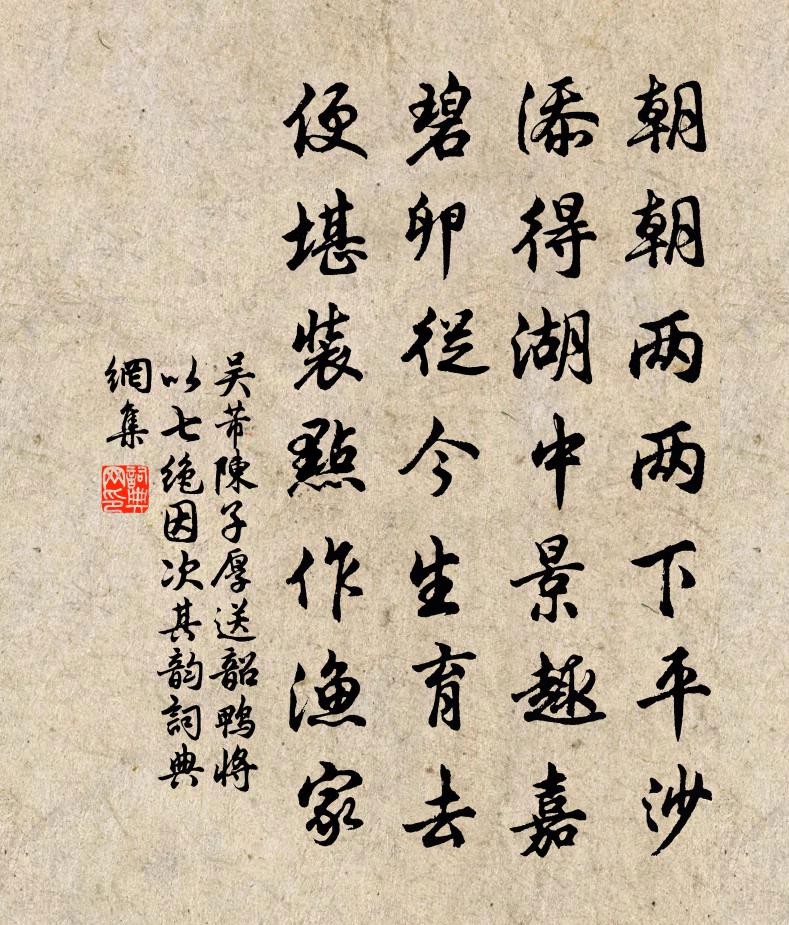 朝朝两两下平沙
添得湖中景趣嘉
碧卵從今生育去
便堪裝點作漁家
吴芾陳子厚送韶鴨將
以七绝因次其韵詞典
網集
詞典
网印